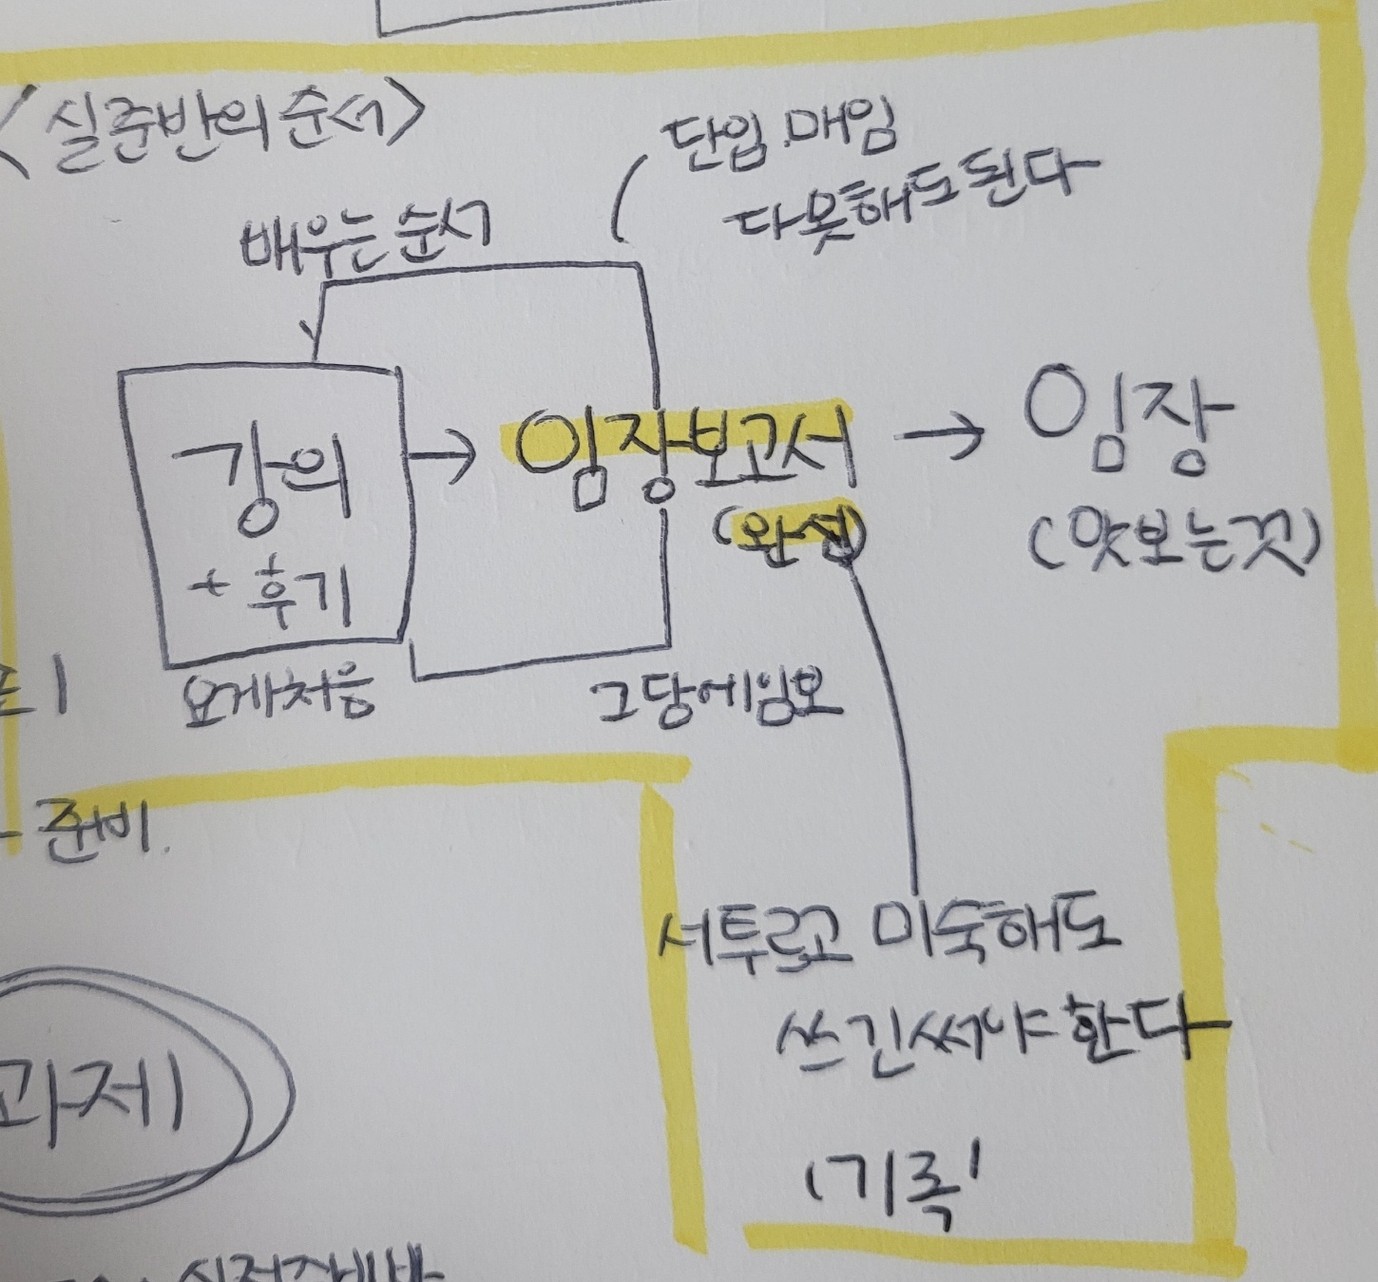 <실준반의 순서>
단임.매임
다못해도된다
배우는 순서
강의
+ 후기
→ 임장보고서
(완성)
→ 임장
(맛보는것)
요게처음
그담에임보
준비.
서투르고 미숙해도
쓰긴써야 한다
'기록'
과제